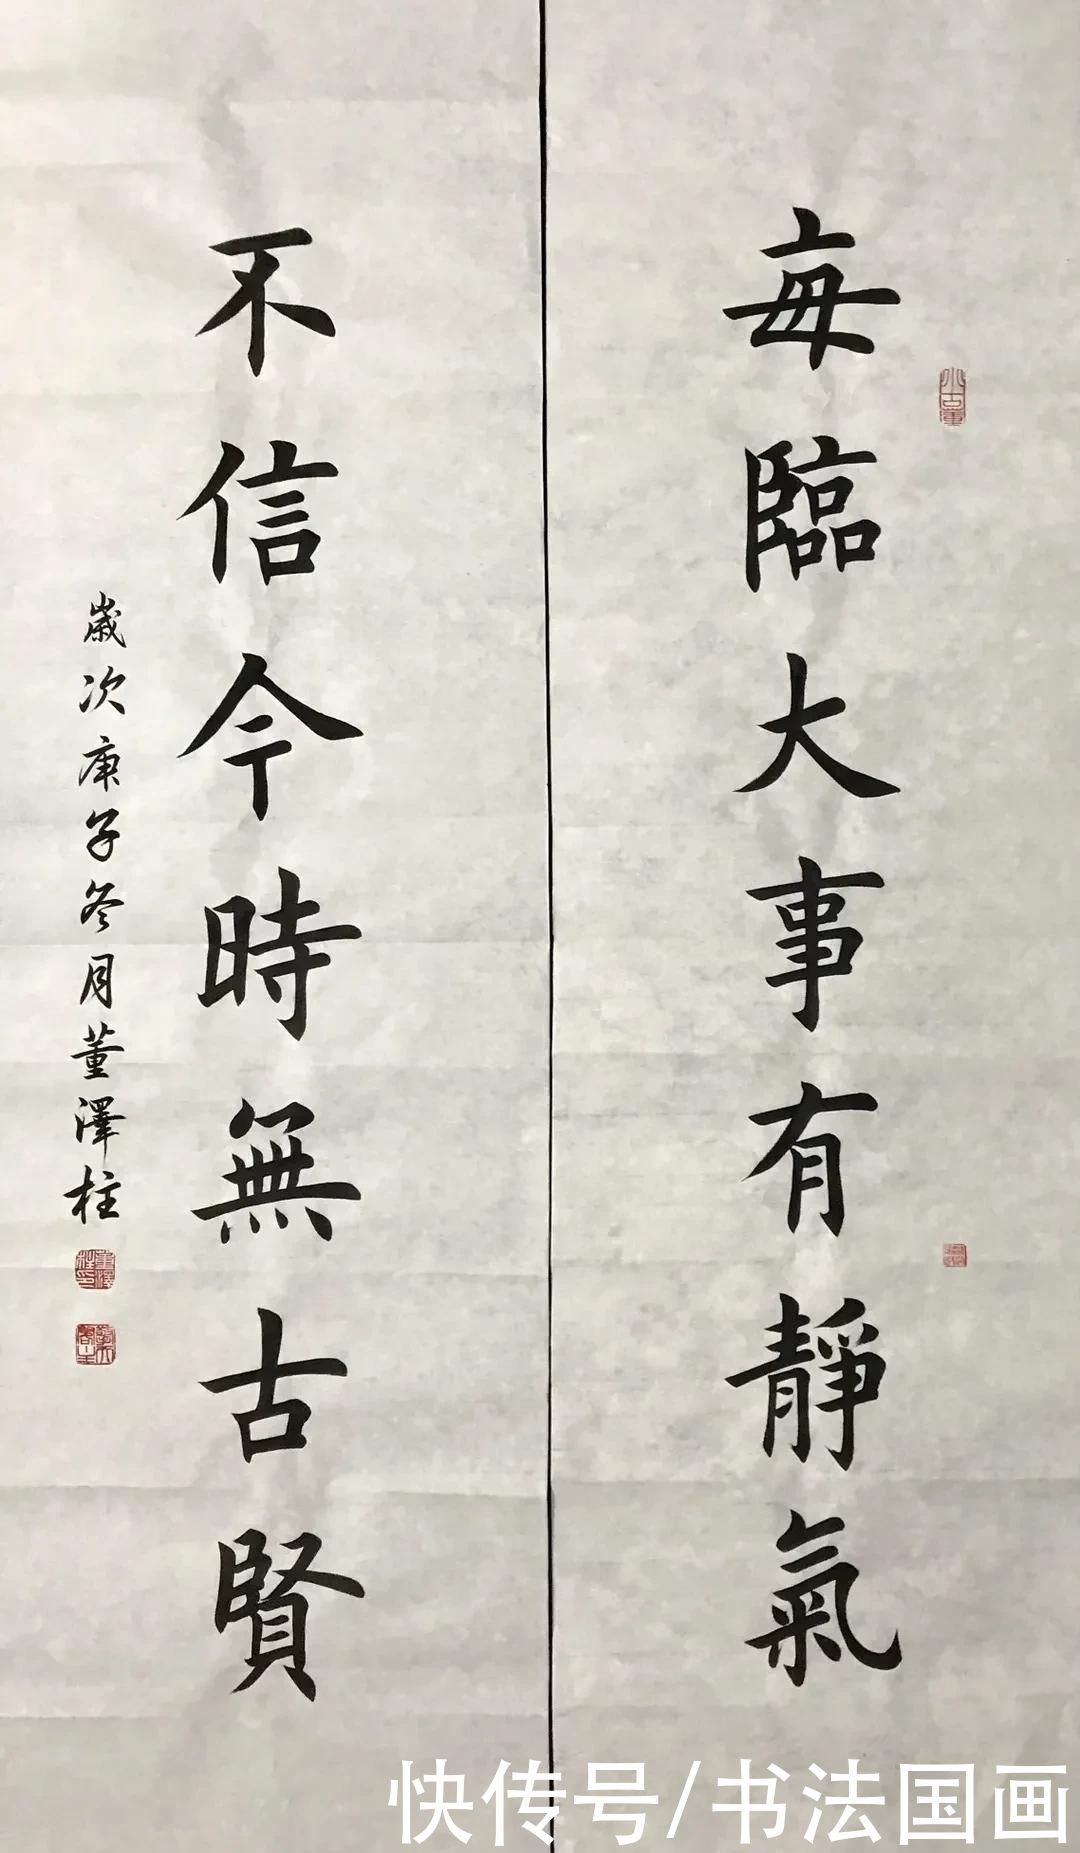 每臨大事有靜氣
不信今時無古賢
歲次庚子冬月董澤柱
快传号/书法国画